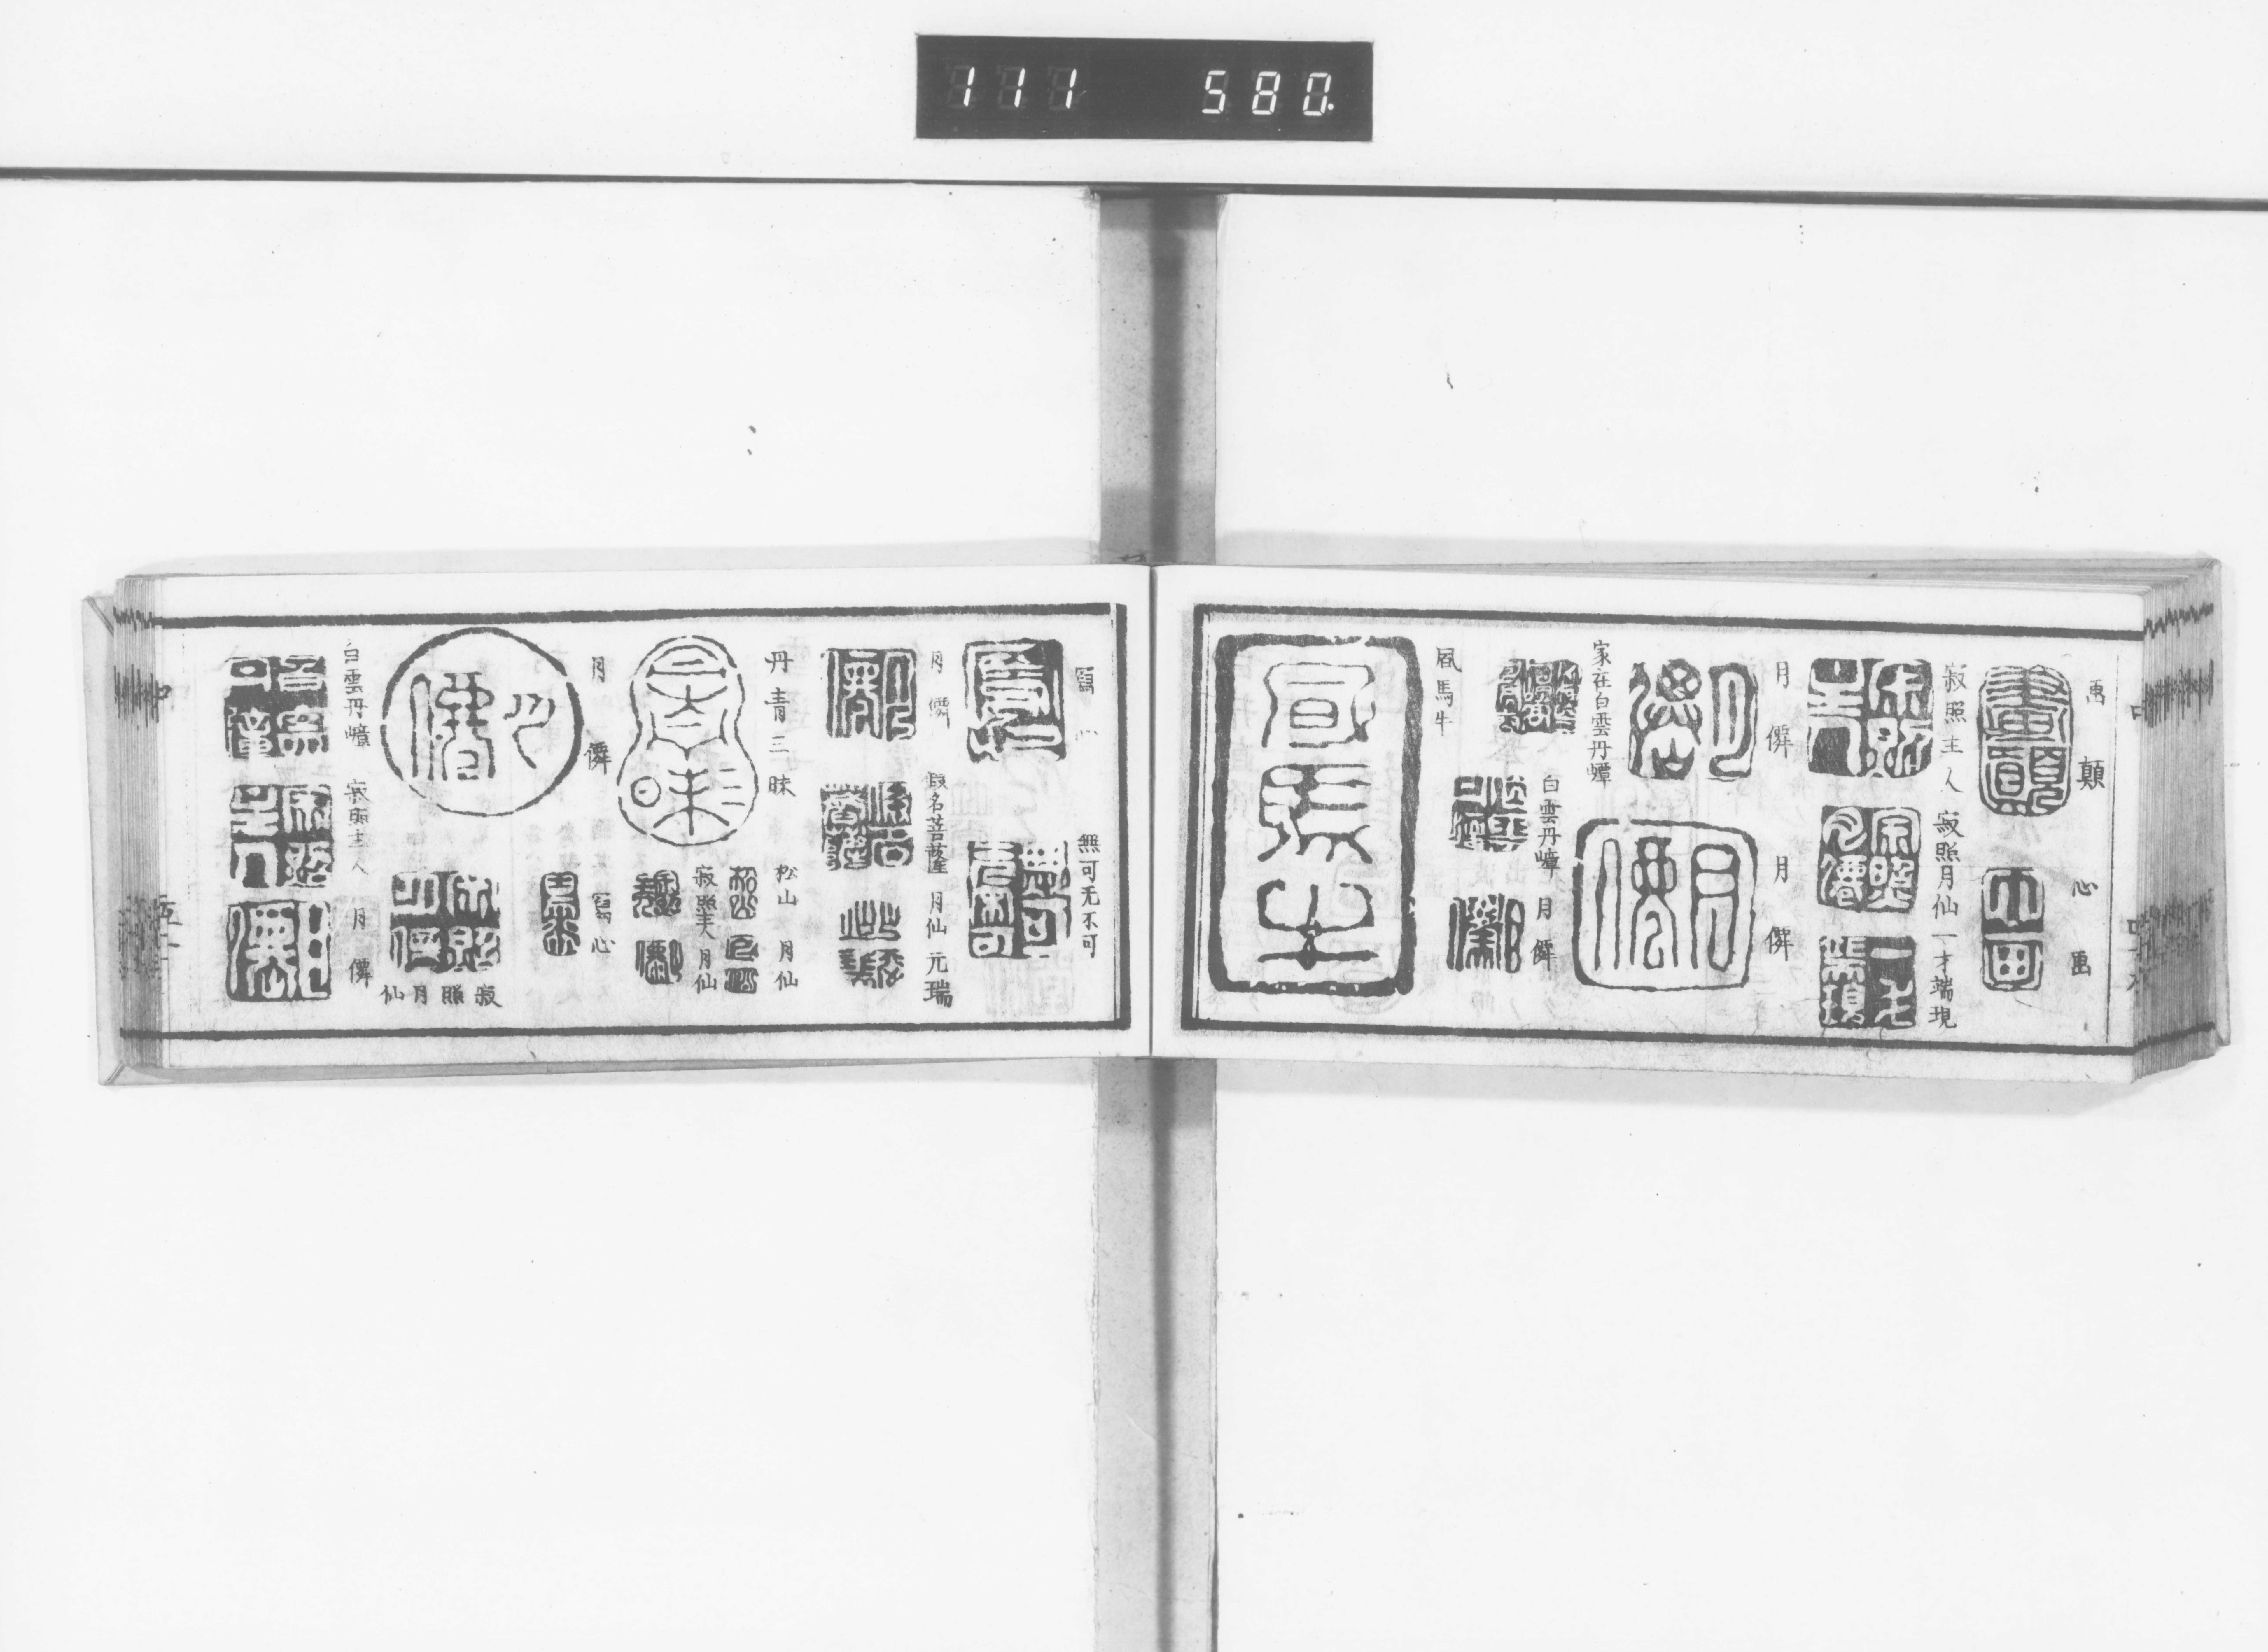 111 580.
畫顛
心畫
寂照主人
寂照月仙
一才端現
月僊
月僊
家在白雲丹嶂
白雲丹嶂
月僊
風馬牛
寫心
無可无不可
月僊
假名菩薩
月仙
元瑞
丹青三昧
松山
月仙
寂照主人
月仙
月僊
寫心
寂照月仙
白雲丹嶂
寂照主人
月僊